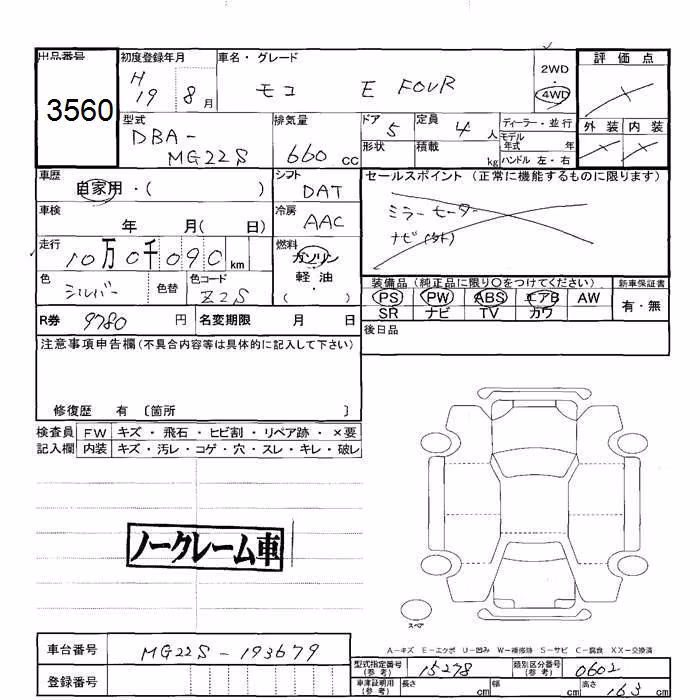 出品番号
3560
初度登録年月
H
19 8月
車名・グレード
モコ E FOUR
2WD
4WD
評価点
外装 内装
型式
DBA-
MG22S
排気量
660 cc
ドア
5
形状
定員
4 人
積載
kg
ディーラー・並行
モデル
年式 年
ハンドル 左・右
車歴
自家用・( )
シフト
DAT
車検
年 月( 日)
冷房
AAC
走行
10万0千090 km
燃料
ガソリン
軽油
( )
色
シルバー
色替
色コード
Z2S
R券 9780 円
名変期限 月 日
セールスポイント(正常に機能するものに限ります)
ミラーモーター
ナビ(外)
装備品(純正品に限り〇をつけてください)
PS PW ABS エアB AW
SR ナビ TV カワ
新車保証書
有・無
後日品
注意事項申告欄(不具合内容等は具体的に記入して下さい)
修復歴 有 〔箇所 〕
検査員 FW キズ・飛石・ヒビ割・リペア跡・×要
記入欄 内装 キズ・汚レ・コゲ・穴・スレ・キレ・破レ
ノークレーム車
スペア
A-キズ E-エクボ U-凹み W-補修跡 S-サビ C-腐食 XX-交換済
車台番号 MG22S-193679
登録番号
型式指定番号
(参考)
15278
類別区分番号
(参考)
0602
車庫証明用
(参考)
長さ cm 幅 cm 高さ 163 cm